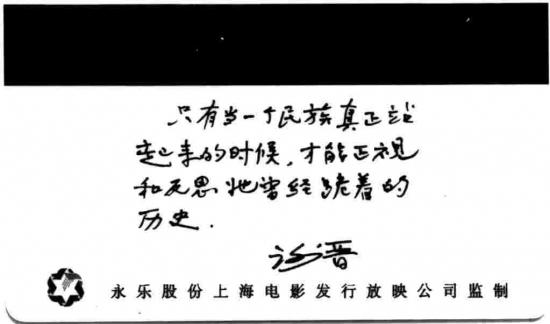 只有当一个民族真正站
起来的时候，才能正视
和反思她曾经跪着的
历史．
谢晋
永乐股份上海电影发行放映公司监制